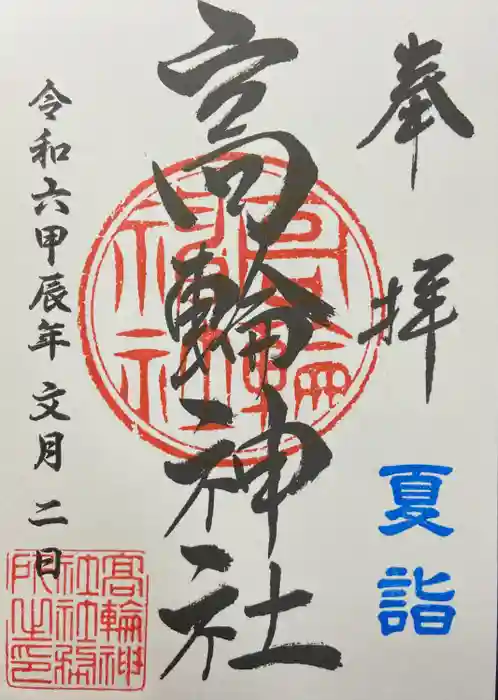 奉拝
夏詣
高輪神社
高輪神社
令和六甲辰年文月二日
高輪神
社社務
所之印